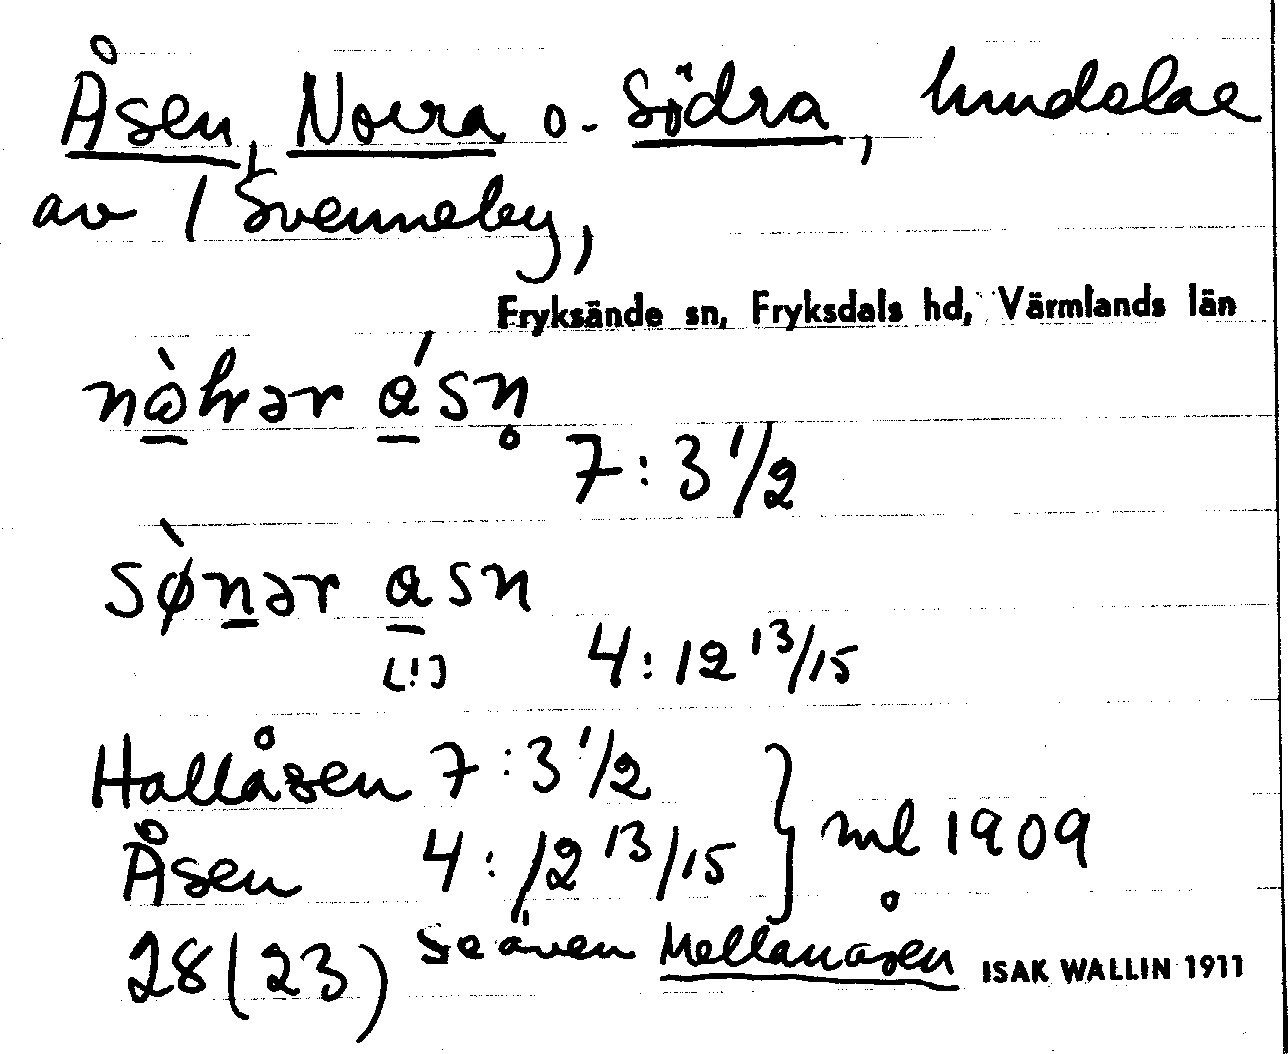 Åsen, Norra o. Södra, hmdelar
av 1 Svenneby,
Fryksände sn, Fryksdals hd, Värmlands län
7:3 1/2
søn̲ər a̲sn
[!] 4:12 13/15
Hallåsen 7:3 1/2
Åsen 4:12 13/15 } ml 1909
28(23) Se även Mellanåsen ISAK WALLIN 1911